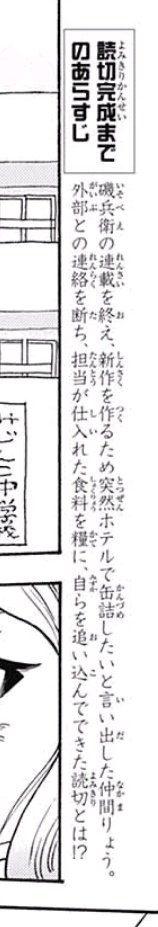 読切完成まで
のあらすじ
磯兵衛の連載を終え、新作を作るため突然ホテルで缶詰したいと言い出した仲間りょう。
外部との連絡を断ち、担当が仕入れた食料を糧に、自らを追い込んでできた読切とは!?